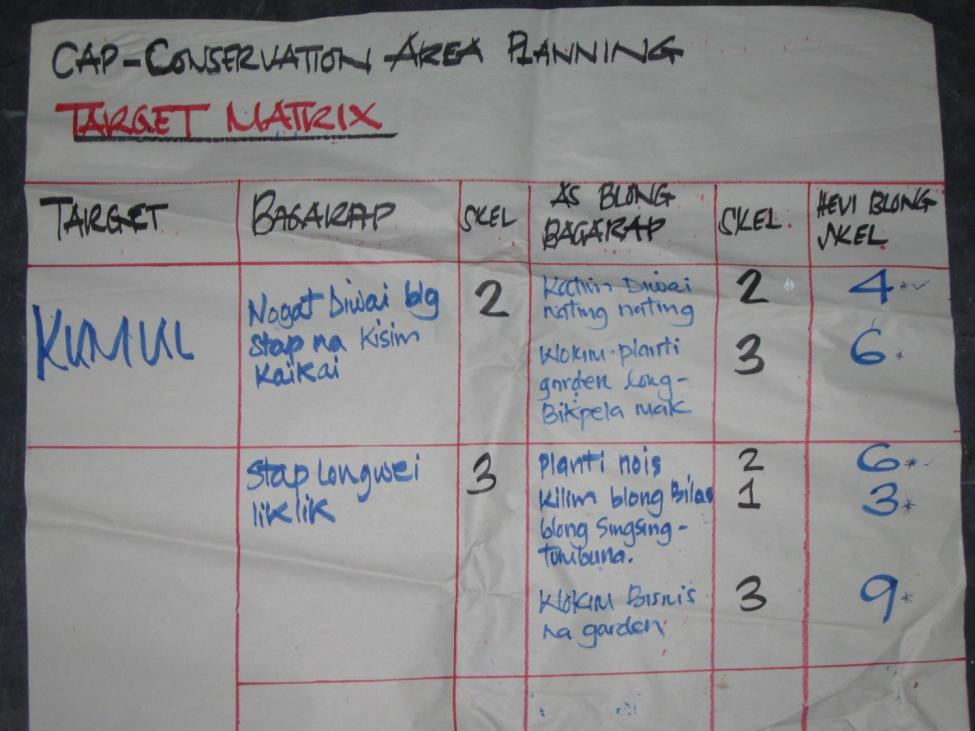 CAP-CONSERVATION AREA PLANNING
TARGET MATRIX
TARGET
BAGARAP
SKEL
AS BLONG
BAGARAP
SKEL
HEVI BLONG
SKEL
KUMUL
Nogat Diwai blg
stap na Kisim
Kaikai
2
Katim Diwai
nating nating
2
4
Wokim planti
garden long-
Bikpela mak
3
6
Stap Longwei
liklik
3
Planti nois
2
6
Kilim blong Bilas
blong Singsing-
tumbuna.
1
3
Wokim Bisnis
na garden
3
9